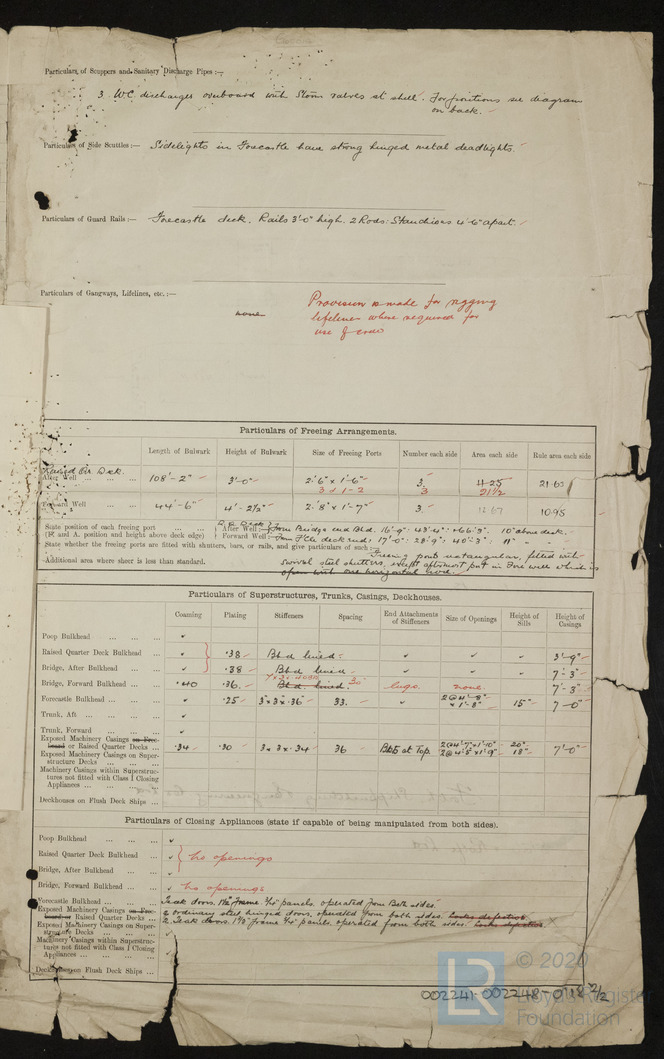 Particulars of Scuppers and Sanitary Discharge Pipes :—
3 WC discharges overboard with Storm valves at shell. For positions see diagram
on back.
Particulars of Side Scuttles :— Sidelights in Forecastle have strong hinged metal deadlights.
Particulars of Guard Rails :— Forecastle deck. Rails 3'-0" high. 2 Rods: Stanchions 4'-6" apart.
Particulars of Gangways, Lifelines, etc. :—
none
Provision is made for rigging
lifelines where required for
use of crew
Particulars of Freeing Arrangements.
Length of Bulwark Height of Bulwark Size of Freeing Ports Number each side Area each side Rule area each side
Raised Qr. Deck.
After Well 108'-2" 3'-0" 2'-6" x 1'-6" 3. 11.25 21.60
3 21½
Forward Well 44'-6" 4'-2½" 2'-8" x 1'-7" 3. 12.67 10.95
State position of each freeing port ... ... After Well :— From Bridge end Bhd. 16'-9" : 43'-4" : 66'-3". 10" above deck.
(F. and A. position and height above deck edge) Forward Well :— From F'cle deck end: 17'-0" : 28'-9" : 40'-3" : 11" " "
State whether the freeing ports are fitted with shutters, bars, or rails, and give particulars of such :— Freeing ports rectangular, fitted with
Additional area where sheer is less than standard. swivel steel shutters, except aftermost port in Fore well which is
open with one horizontal
Particulars of Superstructures, Trunks, Casings, Deckhouses.
Coaming Plating Stiffeners Spacing End Attachments of Stiffeners Size of Openings Height of Sills Height of Casings
Poop Bulkhead ... ... ...
Raised Quarter Deck Bulkhead ... .38 Bhd lined. 3'-9"
Bridge, After Bulkhead ... .38 Bhd lined. 7'-3"
Bridge, Forward Bulkhead ... .40 .36. Bhd. lined. 30" lugs none. 7'-3"
Forecastle Bulkhead ... ... .25 3" x 3" x .36" 33. 2 @ 4'-8" x 1'-8" 15" 7'-0"
Trunk, Aft ... ... ... ...
Trunk, Forward ... ... ...
Exposed Machinery Casings on Free-
board or Raised Quarter Decks ... .34 .30 3 x 3 x .34 36 Bkts at Top. 2 @ 4'-7" x 1'-10" 20" 7'-0"
2 @ 4'-8" x 1'-9" 18"
Exposed Machinery Casings on Super-
structure Decks ... ... ...
Machinery Casings within Superstruc-
tures not fitted with Class I Closing
Appliances ... ... ... ...
Deckhouses on Flush Deck Ships ...
Particulars of Closing Appliances (state if capable of being manipulated from both sides).
Poop Bulkhead ... ... ...
Raised Quarter Deck Bulkhead ... No openings
Bridge, After Bulkhead ...
Bridge, Forward Bulkhead ... no openings
Forecastle Bulkhead ... ... Teak doors. frame panels. operated from Both sides.
Exposed Machinery Casings on Free-
board or Raised Quarter Decks ... 2 ordinary steel hinged doors, operated from both sides.
2 Teak doors. frame panels. operated from both sides.
Exposed Machinery Casings on Super-
structure Decks ... ... ...
Machinery Casings within Superstruc-
tures not fitted with Class I Closing
Appliances ... ... ... ...
Deckhouses on Flush Deck Ships ...
© 2020
LR
Lloyd's Register
Foundation
002241-002248-0118 2/2